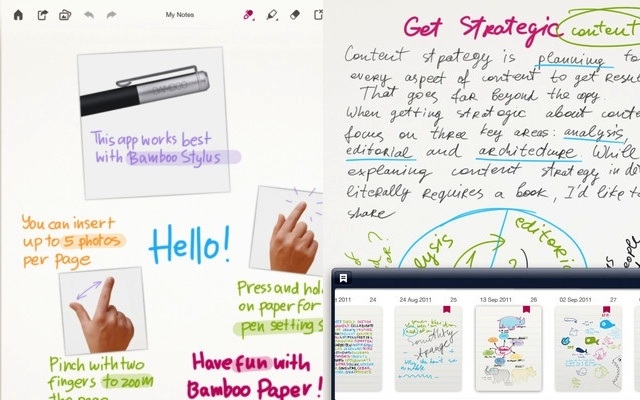 My Notes
BAMBOO
This app works best
with Bamboo Stylus
You can insert
up to 5 photos
per page
Hello!
Press and hold
on paper for
pen setting s
Pinch with two
fingers to zoom
the page
Have fun with
Bamboo Paper!
Get Strategic content
Content strategy is planning fo
every aspect of content to get resul
That goes far beyond the copy.
When getting strategic about conte
focus on three key areas: analysis,
editorial and architecture. While
explaning content strategy in
literally requires a book, I'd like to
share
alysis
editoria
2011 24
24 Aug 2011 25
13 Sep 2011 26
02 Sep 2011 27